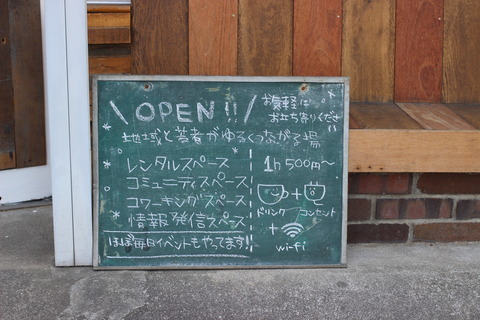 \ OPEN!! /
お気軽に
お立ち寄りください!!
地域と若者がゆるくつながる場
レンタルスペース
コミュニティスペース
コワーキングスペース
情報発信スペース
1h 500円〜
+
ドリンク コンセント
+
wi-fi
ほぼ毎日イベントもやってます!